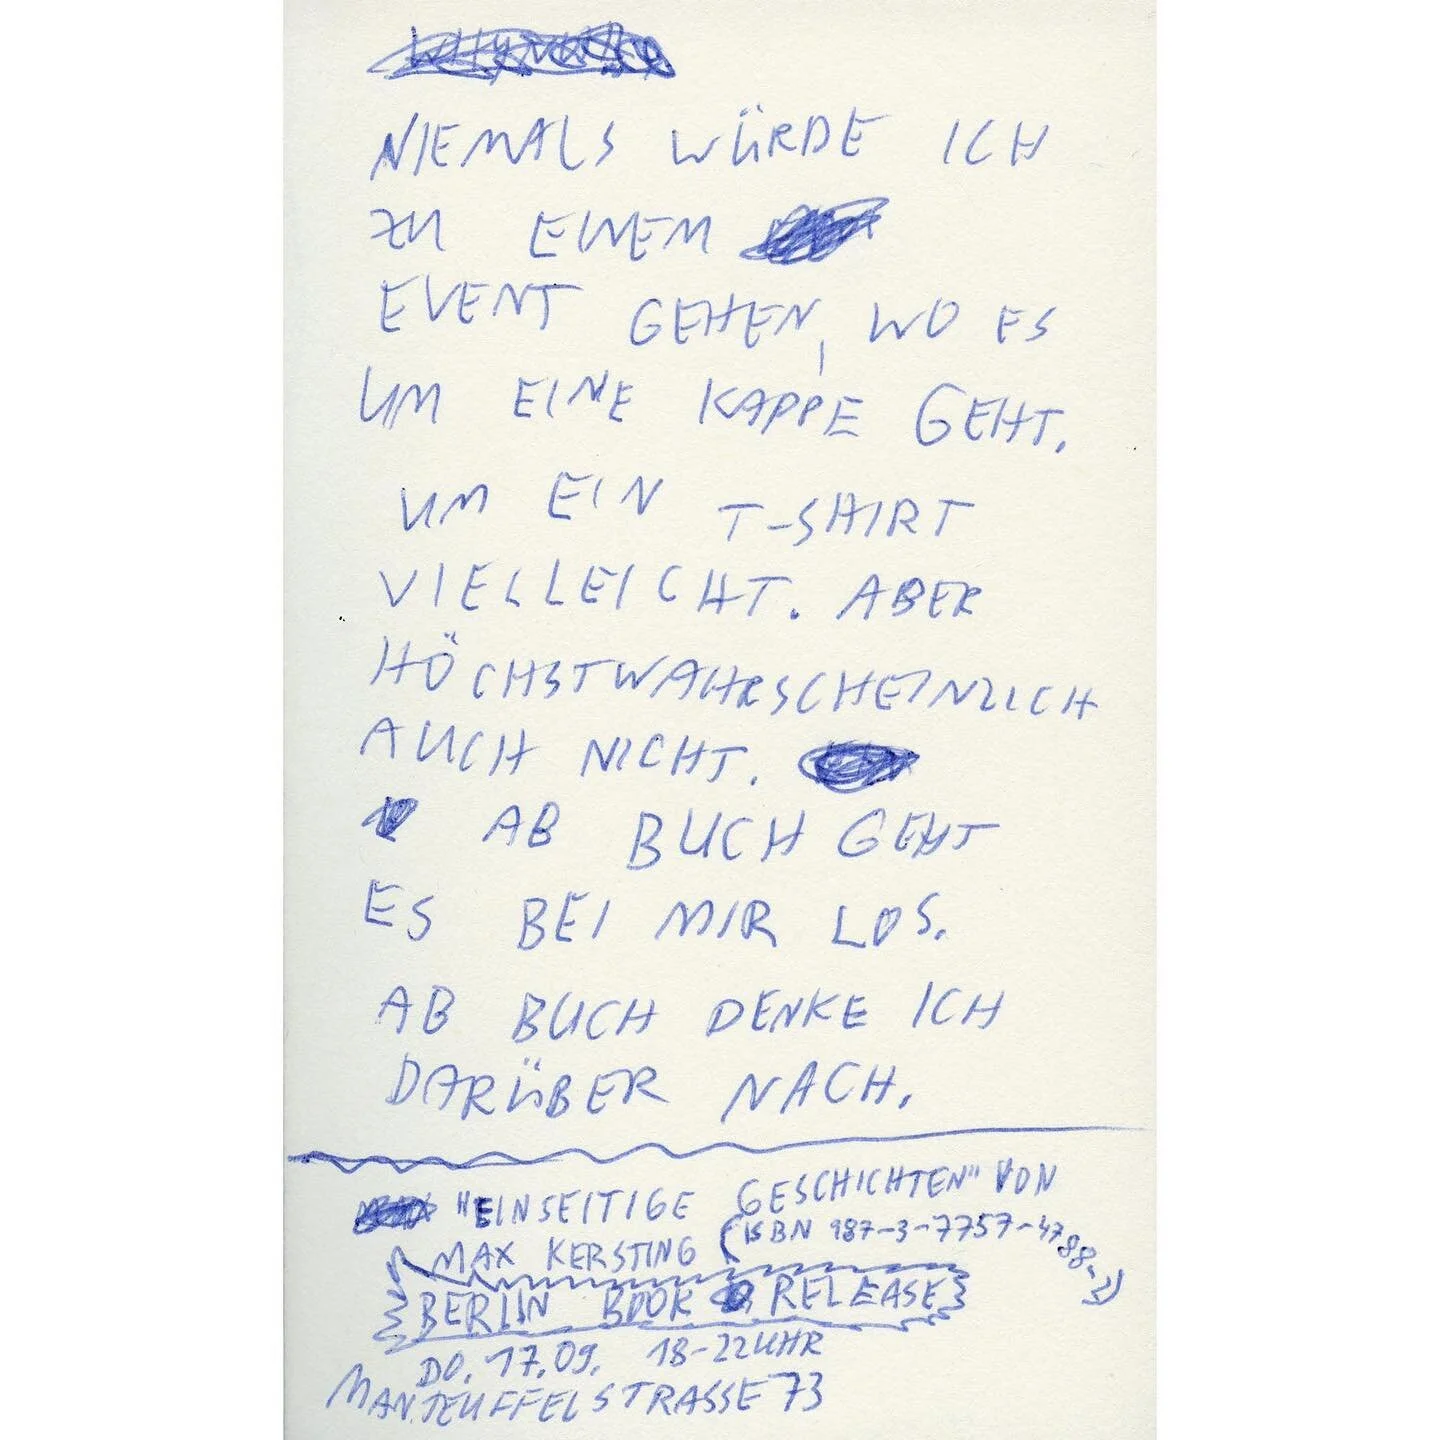 NIEMALS WÜRDE ICH
ZU EINEM
EVENT GEHEN, WO ES
UM EINE KAPPE GEHT.
UM EIN T-SHIRT
VIELLEICHT. ABER
HÖCHSTWAHRSCHEINLICH
AUCH NICHT.
AB BUCH GEHT
ES BEI MIR LOS.
AB BUCH DENKE ICH
DARÜBER NACH.
"EINSEITIGE GESCHICHTEN" VON
MAX KERSTING (ISBN 987-3-7757-4788-1)
BERLIN BOOK RELEASE
DO. 17.09. 18-22UHR
MANTEUFFELSTRASSE 73